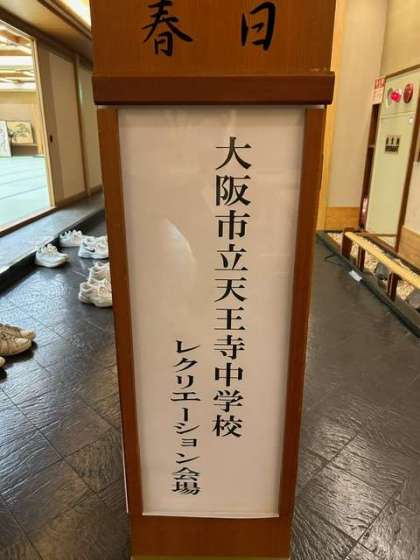 春日
大阪市立天王寺中学校
レクリエーション会場